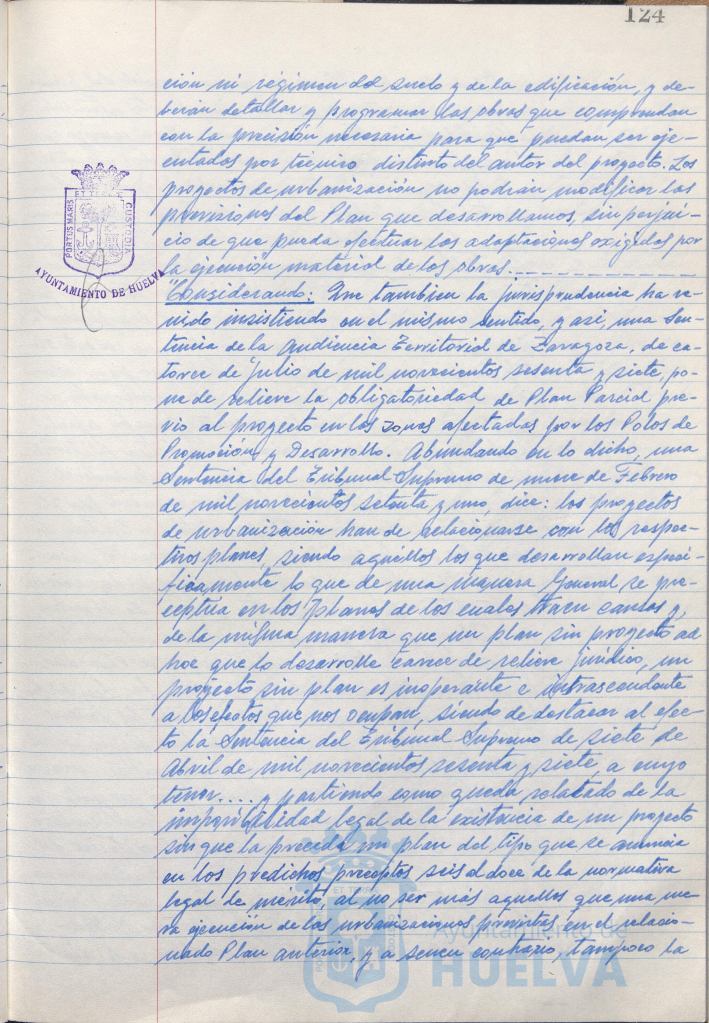 124
ción ni régimen del suelo y de la edificación, y de-
berán detallar y programar las obras que comprendan
con la precisión necesaria para que puedan ser eje-
cutados por técnico distinto del autor del proyecto. Los
proyectos de urbanización no podrán modificar las
previsiones del Plan que desarrollamos, sin perjui-
cio de que pueda efectuar las adaptaciones exigidas por
la ejecución material de las obras.
"Considerando: Que tambien la jurisprudencia ha ve-
nido insistiendo en el mismo sentido, y asi, una Sen-
tencia de la Audiencia Territorial de Zaragoza, de ca-
torce de Julio de mil novecientos sesenta y siete, po-
ne de relieve la obligatoriedad de Plan Parcial pre-
vio al proyecto en las zonas afectadas por los Polos de
Promoción y Desarrollo. Abundando en lo dicho, una
Sentencia del Tribunal Supremo de nueve de Febrero
de mil novecientos setenta y uno, dice: los proyectos
de urbanización han de relacionarse con los respec-
tivos planes, siendo aquéllos los que desarrollan especí-
ficamente lo que de una manera General se pre-
ceptúa en los Planes de los cuales traen causa y,
de la misma manera que un plan sin proyecto ad
hoc que lo desarrolle carece de relieve jurídico, un
proyecto sin plan es inoperante e intrascendente
a los efectos que nos ocupan, siendo de destacar al efec-
to la Sentencia del Tribunal Supremo de siete de
Abril de mil novecientos sesenta y siete, a cuyo
tenor.... y partiendo como queda relatado de la
imposibilidad legal de la existencia de un proyecto
sin que la preceda un plan del tipo que se anuncia
en los predichos preceptos seis al doce de la normativa
legal de mérito, al no ser más aquellos que una me-
ra ejecución de las urbanizaciones previstas en el relacio-
nado Plan anterior, y a sensu contrario, tampoco la
PORTUS MARIS ET TERRAE CUSTODIA
AYUNTAMIENTO DE HUELVA
Ayuntamiento de
HUELVA